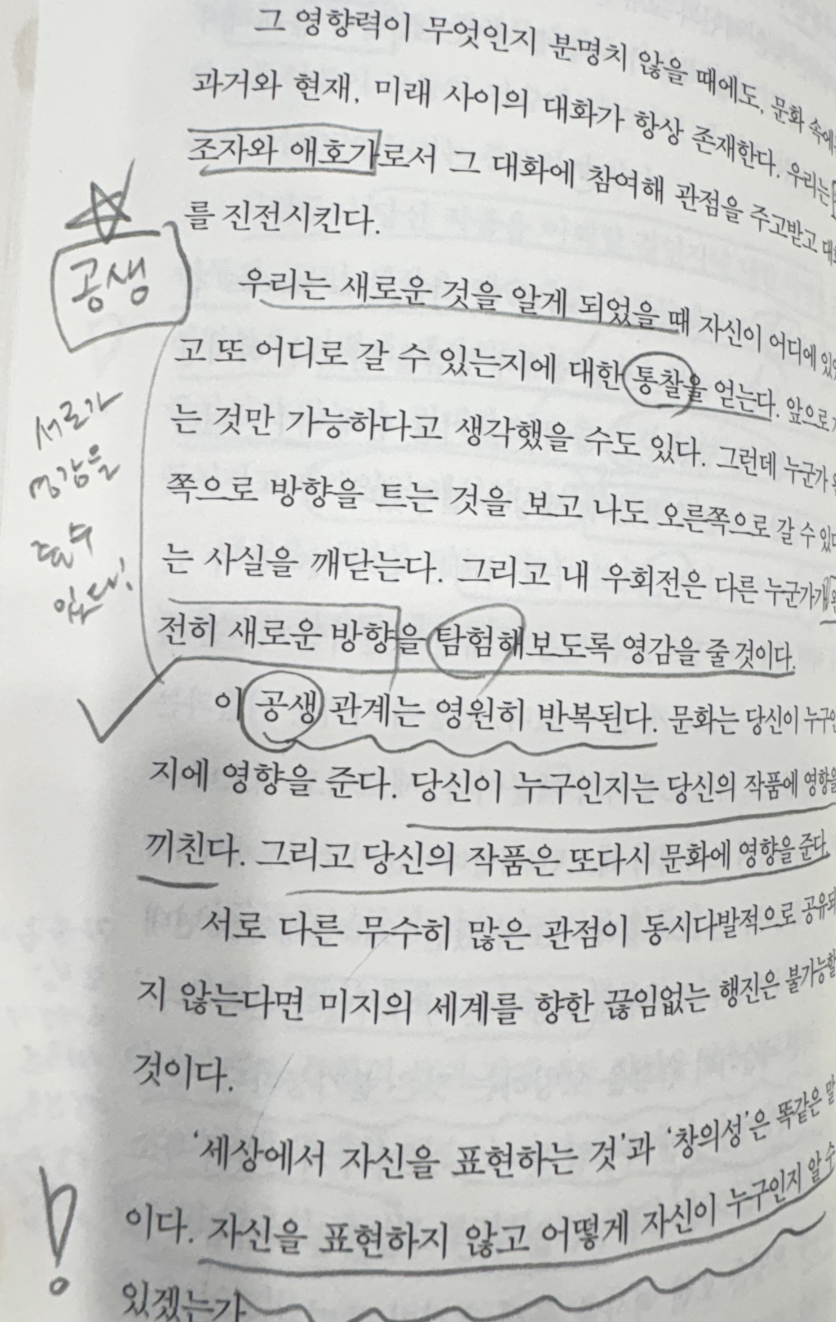 그 영향력이 무엇인지 분명치 않을 때에도, 문화 속에
과거와 현재, 미래 사이의 대화가 항상 존재한다. 우리는
조자와 애호가로서 그 대화에 참여해 관점을 주고받고 대화
를 진전시킨다.
공생
우리는 새로운 것을 알게 되었을 때 자신이 어디에
고 또 어디로 갈 수 있는지에 대한 통찰을 얻는다. 앞으로
는 것만 가능하다고 생각했을 수도 있다. 그런데 누군가
쪽으로 방향을 트는 것을 보고 나도 오른쪽으로 갈 수 있다
는 사실을 깨닫는다. 그리고 내 우회전은 다른 누군가가
전히 새로운 방향을 탐험해보도록 영감을 줄 것이다.
서로가
영감을
줄 수
있다!
이 공생 관계는 영원히 반복된다. 문화는 당신이 누구인
지에 영향을 준다. 당신이 누구인지는 당신의 작품에 영향을
끼친다. 그리고 당신의 작품은 또다시 문화에 영향을 준다.
서로 다른 무수히 많은 관점이 동시다발적으로 공유되
지 않는다면 미지의 세계를 향한 끊임없는 행진은 불가능할
것이다.
‘세상에서 자신을 표현하는 것’과 ‘창의성’은 똑같은 말
이다. 자신을 표현하지 않고 어떻게 자신이 누구인지 알 수
있겠는가
!